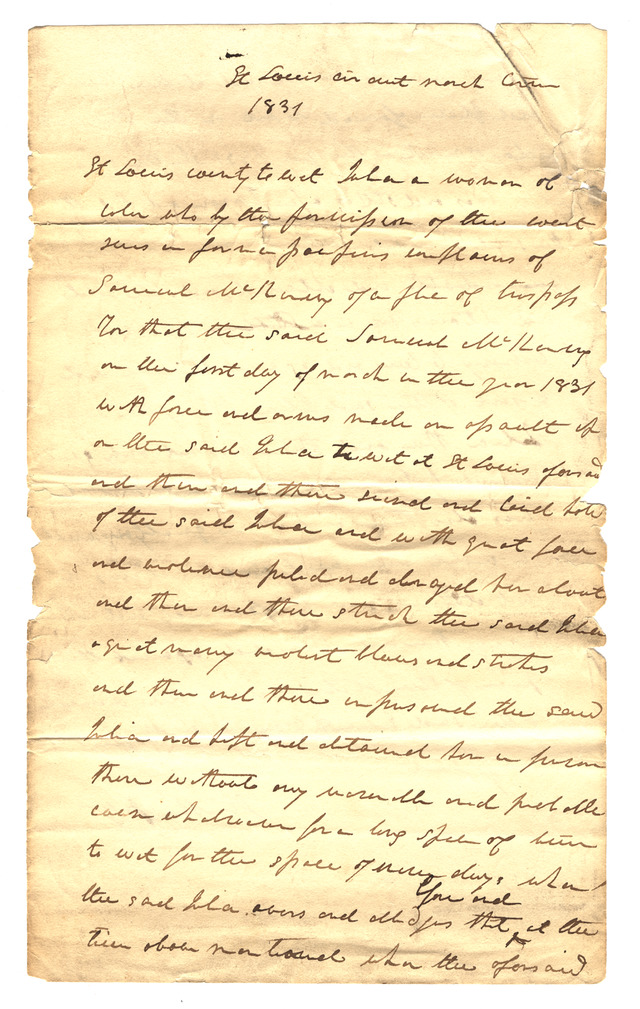 St Louis circuit March Term
1831
St Louis county to wit Julia a woman of
color who by the permission of the court
sues in forma pauperis complains of
Samuel McKenney of a plea of trespass
For that the said Samuel McKenney
on the first day of March in the year 1831
with force and arms made an assault
on the said Julia to wit at St Louis aforesaid
and then and there seized and laid hold
of the said Julia and with great force
and violence pulled and dragged her about
and then and there struck the said Julia
a great many violent blows and strokes
and then and there imprisoned the said
Julia and kept and detained her in prison
there without any reasonable and probable
cause whatsoever for a long space of time
to wit for the space of days, when
the said Julia avers and alledges that at the
time above mentioned when the aforesaid